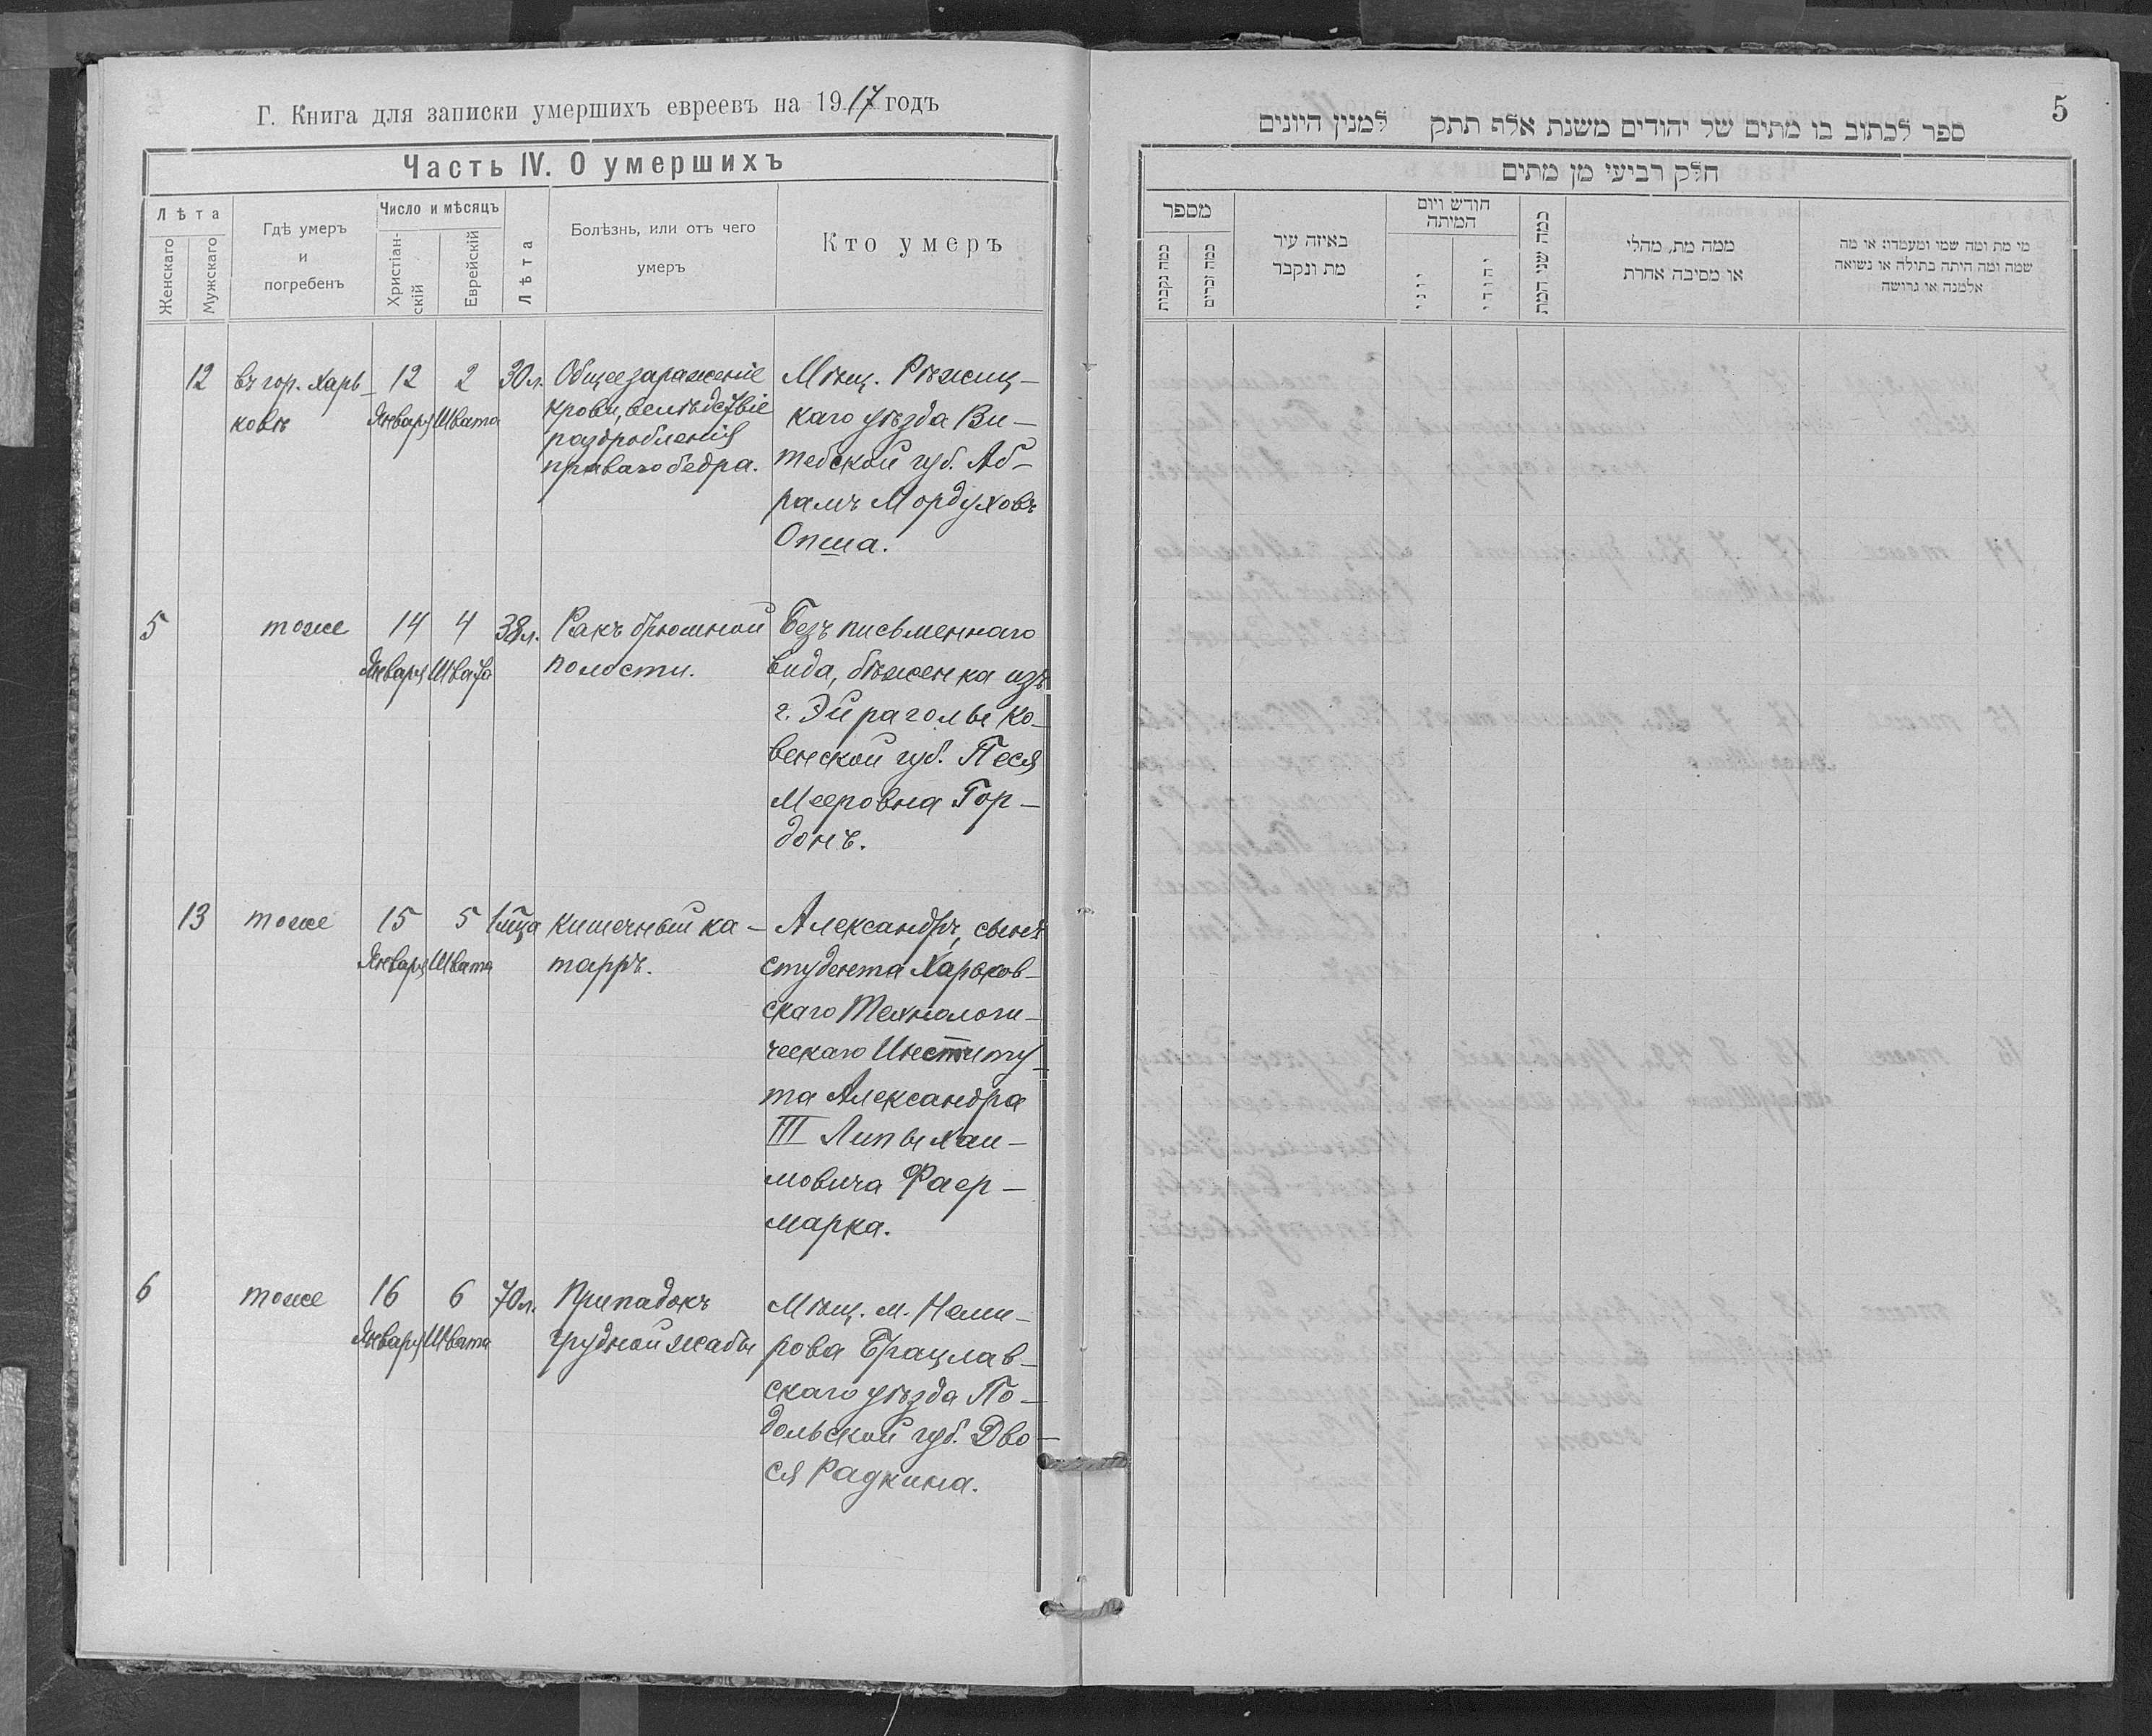 Г. Книга для записки умершихъ евреевъ на 1917 годъ
Часть IV. О умершихъ
Лѣта
Женскаго
Мужскаго
Гдѣ умеръ
и
погребенъ
Число и мѣсяцъ
Христіан-
скій
Еврейскій
Лѣта
Болѣзнь, или отъ чего
умеръ
Кто умеръ
12
въ гор. Харь-
ковѣ
12
Января
2
Швата
30 л.
Общее зараженіе
крови, вслѣдствіе
раздробленія
праваго бедра.
Мѣщ. Рѣжиц-
каго уѣзда Ви-
тебской губ. Аб-
рамъ Мордуховъ
Опша.
5
тоже
14
Января
4
Швата
38 л.
Ракъ брюшной
полости.
Безъ письменнаго
вида, бѣженка изъ
г. Эйраголы Ко-
венской губ. Песя
Мееровна Гор-
донъ.
13
тоже
15
Января
5
Швата
1 м-ца
кишечный ка-
тарръ.
Александръ, сынъ
студента Харьков-
скаго Технологи-
ческаго Институ-
та Александра
III Липы Хаи-
мовича Фаер-
марка.
6
тоже
16
Января
6
Швата
70 л.
Припадокъ
грудной жабы
Мѣщ. м. Неми-
рова Брацлав-
скаго уѣзда По-
дольской губ. Дво-
ся Радкина.
5
ספר לכתוב בו מתים של יהודים משנת אלף תתק למנין היונים
חלק רביעי מן מתים
מספר
כמה נקבות
כמה זכרים
באיזה עיר
מת ונקבר
חודש ויום
המיתה
יוני
יהודי
כמה שני המת
ממה מת, מהלי
או מסיבה אחרת
מי מת ומה שמו ומעמדו: או מה
שמה ומה היתה בתולה או נשואה
אלמנה או גרושה